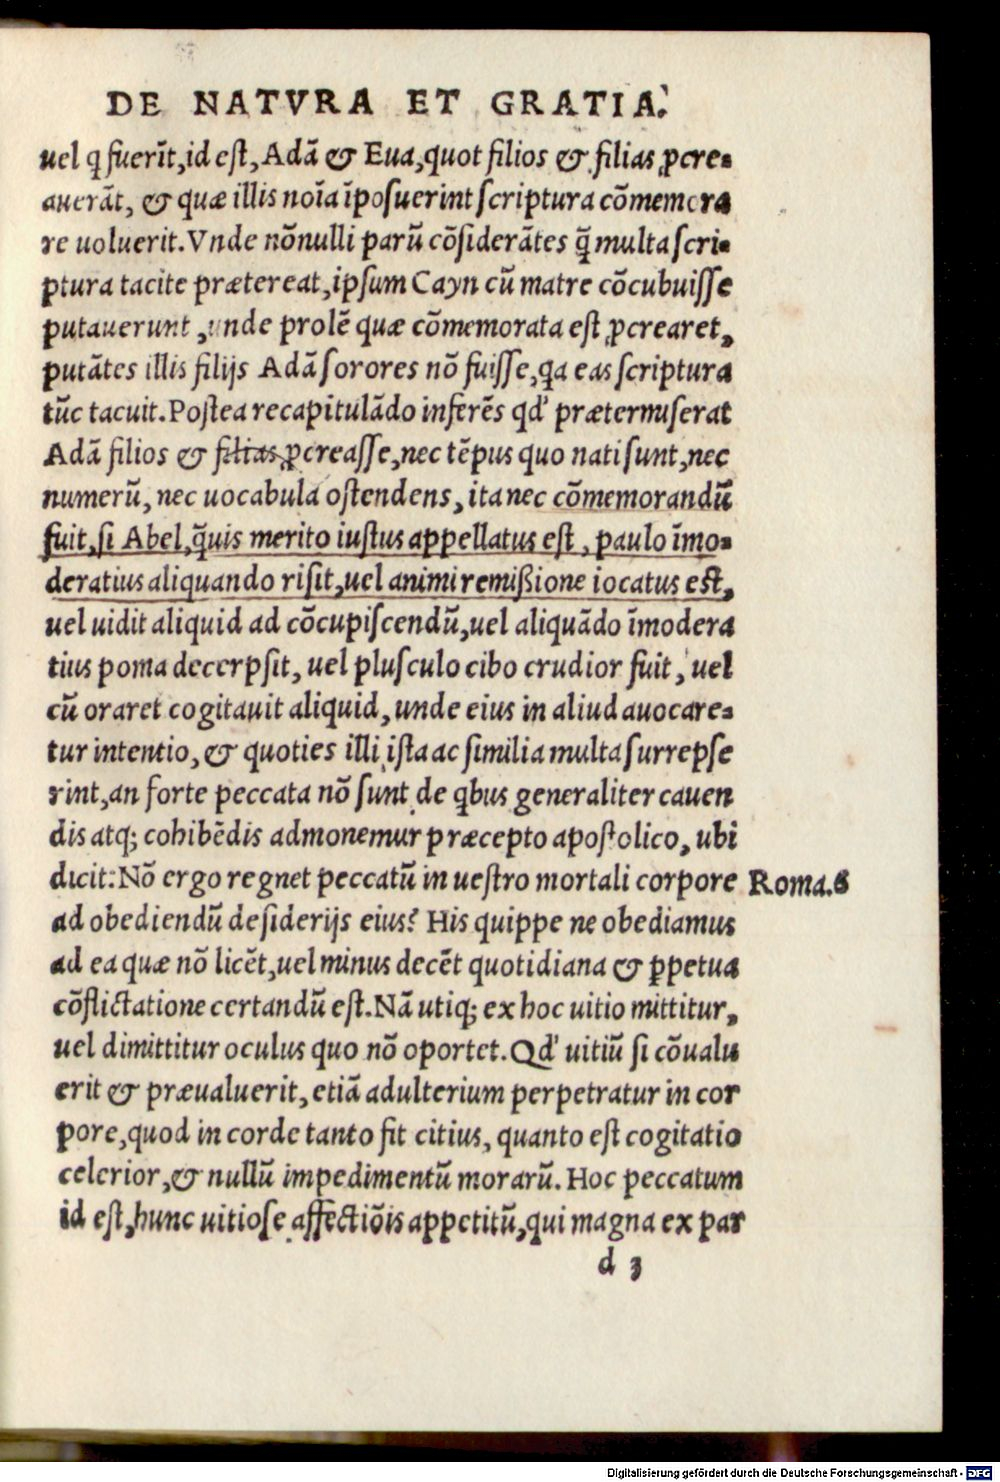 DE NATVRA ET GRATIA.
uel q̃ fuerĩt, id est, Adã & Eua, quot filios & filias ꝓcre⸗
auerãt, & quæ illis noĩa ĩposuerint scriptura cõmemora
re uoluerit. Vnde nõnulli parũ cõsiderãtes q̃ multa scri⸗
ptura tacite prætereat, ipsum Cayn cũ matre cõcubuisse
putauerunt, unde prolẽ quæ cõmemorata est ꝓcrearet,
putãtes illis filijs Adã sorores nõ fuisse, qa eas scriptura
tũc tacuit. Postea recapitulãdo inferẽs qd' prætermiserat
Adã filios & filias ꝓcreasse, nec tẽpus quo nati sunt, nec
numerũ, nec uocabula ostendens, ita nec cõmemorandũ
fuit, si Abel, q̃uis merito iustus appellatus est, paulo ĩmo⸗
deratius aliquando risit, uel animi remißione iocatus est,
uel uidit aliquid ad cõcupiscendũ, uel aliquãdo ĩmodera
tius poma decerpsit, uel plusculo cibo crudior fuit, uel
cũ oraret cogitauit aliquid, unde eius in aliud auocare⸗
tur intentio, & quoties illi ista ac similia multa surrepse
rint, an forte peccata nõ sunt de qbus generaliter cauen
dis atq; cohibẽdis admonemur præcepto apostolico, ubi
dicit: Nõ ergo regnet peccatũ in uestro mortali corpore
Roma. 6
ad obediendũ desiderijs eius? His quippe ne obediamus
ad ea quæ nõ licẽt, uel minus decẽt quotidiana & ꝑpetua
cõflictatione certandũ est. Nã utiq; ex hoc uitio mittitur,
uel dimittitur oculus quo nõ oportet. Qd' uitiũ si cõualu
erit & præualuerit, etiã adulterium perpetratur in cor
pore, quod in corde tanto fit citius, quanto est cogitatio
celerior, & nullũ impedimentũ morarũ. Hoc peccatum
id est, hunc uitiose affectiõis appetitũ, qui magna ex par
d 3
Digitalisierung gefördert durch die Deutsche Forschungsgemeinschaft - DFG